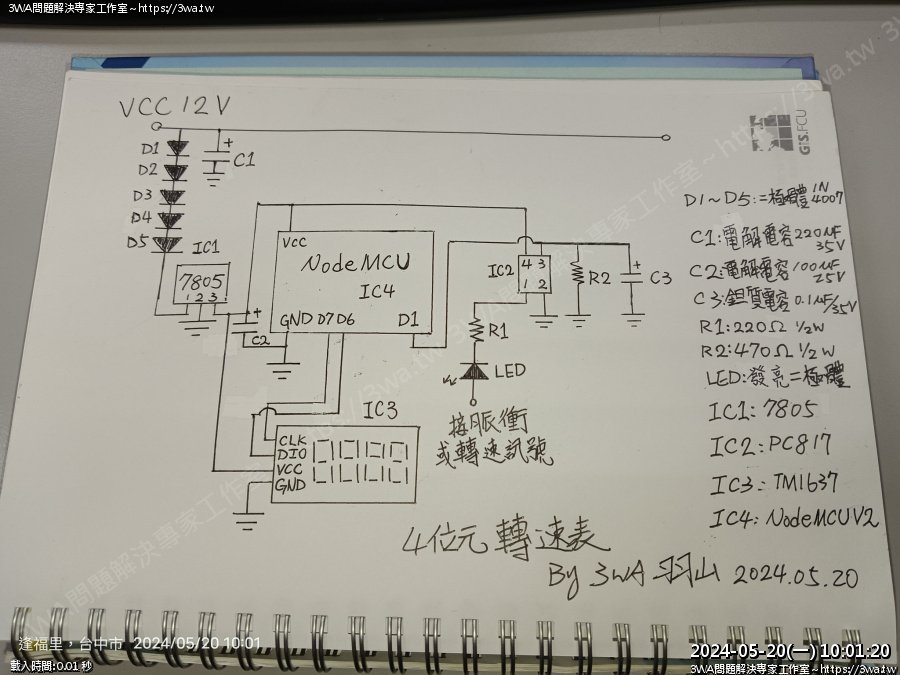 3WA問題解決專家工作室~https://3wa.tw
VCC 12V
D1
D2
D3
D4
D5
+
C1
IC1
7805
1 2 3
+
C2
VCC
NodeMCU
IC4
GND D7 D6 D1
IC2
4 3
1 2
R1
LED
R2
+
C3
接脈衝
或轉速訊號
IC3
CLK
DIO
VCC
GND
GIS.FCU
D1~D5:二極體 1N4007
C1:電解電容 220uF 35V
C2:電解電容 100uF 25V
C3:鉭質電容 0.1uF/35V
R1:220Ω 1/2W
R2:470Ω 1/2W
LED:發亮二極體
IC1:7805
IC2:PC817
IC3:TM1637
IC4:NodeMCUV2
4位元轉速表
By 3WA 羽山 2024.05.20
3WA問題解決專家工作室~https://3wa.tw
逢福里，台中市 2024/05/20 10:01
載入時間:0.01 秒
2024-05-20(一) 10:01:20
3WA問題解決專家工作室~https://3wa.tw